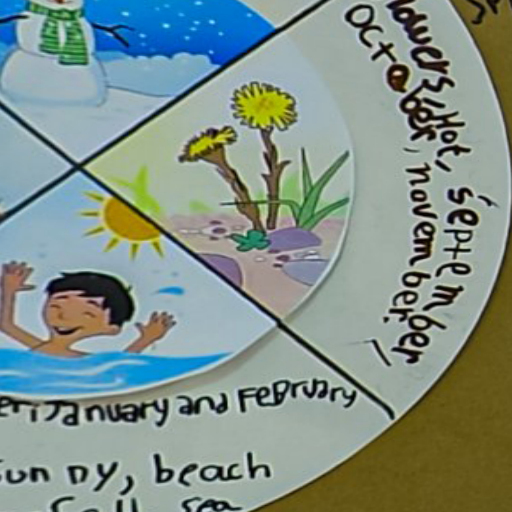 flowers, Hot, september
october, november.
January and February
sunny, beach
sea